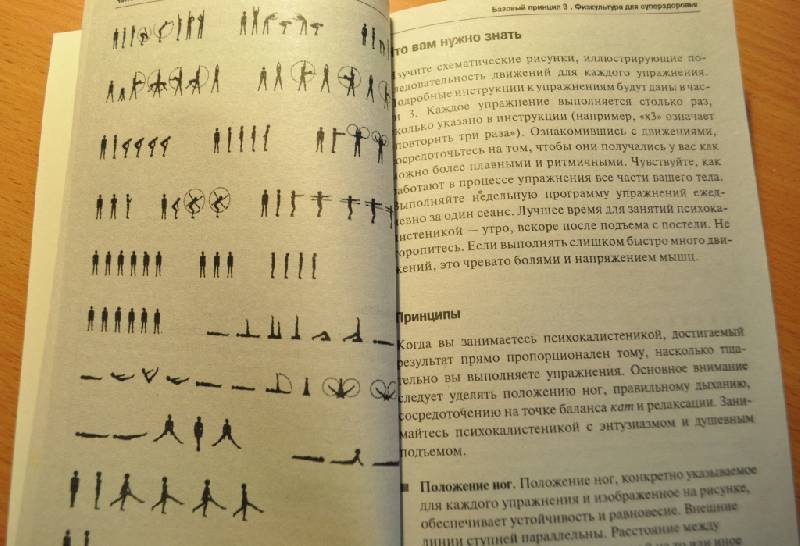 Базовый принцип 3 . Физкультура для суперздоровья
то вам нужно знать
зучите схематические рисунки, иллюстрирующие по-
ледовательность движений для каждого упражнения.
Подробные инструкции к упражнениям будут даны в час-
и 3. Каждое упражнение выполняется столько раз,
колько указано в инструкции (например, «х3» означает
повторить три раза»). Ознакомившись с движениями,
осредоточьтесь на том, чтобы они получались у вас как
ожно более плавными и ритмичными. Чувствуйте, как
аботают в процессе упражнения все части вашего тела.
Выполняйте недельную программу упражнений ежед-
евно за один сеанс. Лучшее время для занятий психока-
истеникой — утро, вскоре после подъема с постели. Не
оропитесь. Если выполнять слишком быстро много дви-
жений, это чревато болями и напряжением мышц.
Принципы
Когда вы занимаетесь психокалистеникой, достигаемый
результат прямо пропорционален тому, насколько тща-
тельно вы выполняете упражнения. Основное внимание
следует уделять положению ног, правильному дыханию,
сосредоточению на точке баланса кат и релаксации. Зани-
майтесь психокалистеникой с энтузиазмом и душевным
подъемом.
■ Положение ног. Положение ног, конкретно указываемое
для каждого упражнения и изображенное на рисунке,
обеспечивает устойчивость и равновесие. Внешние
линии ступней параллельны. Расстояние между